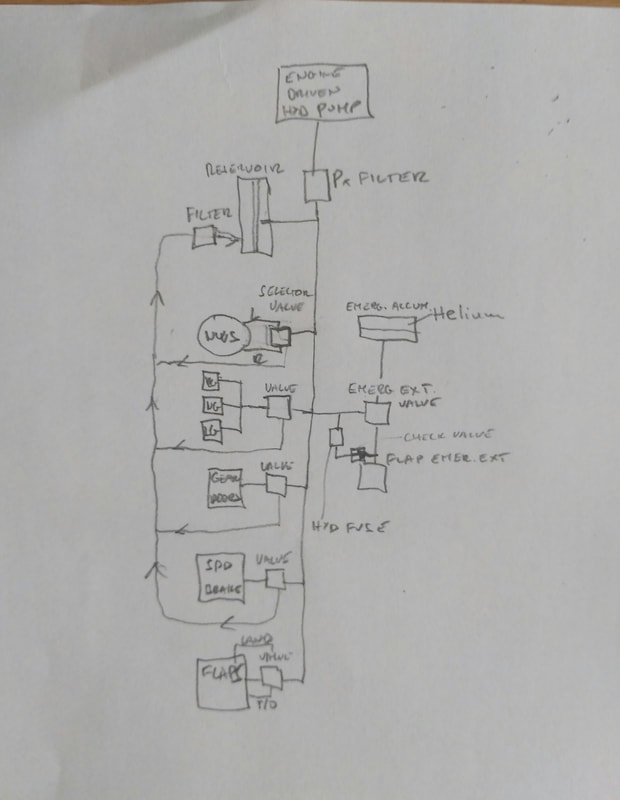 ENGINE
DRIVEN
HYD PUMP
RESERVOIR
PR FILTER
FILTER
SELECTOR
VALVE
NWS
R
EMERG. ACCUM.
Helium
LG
LG
LG
VALVE
EMERG EXT.
VALVE
CHECK VALVE
FLAP EMER. EXT
GEAR
DOORS
VALVE
HYD FUSE
SPD
BRAKE
VALVE
LAND
FLAPS
VALVE
T/O